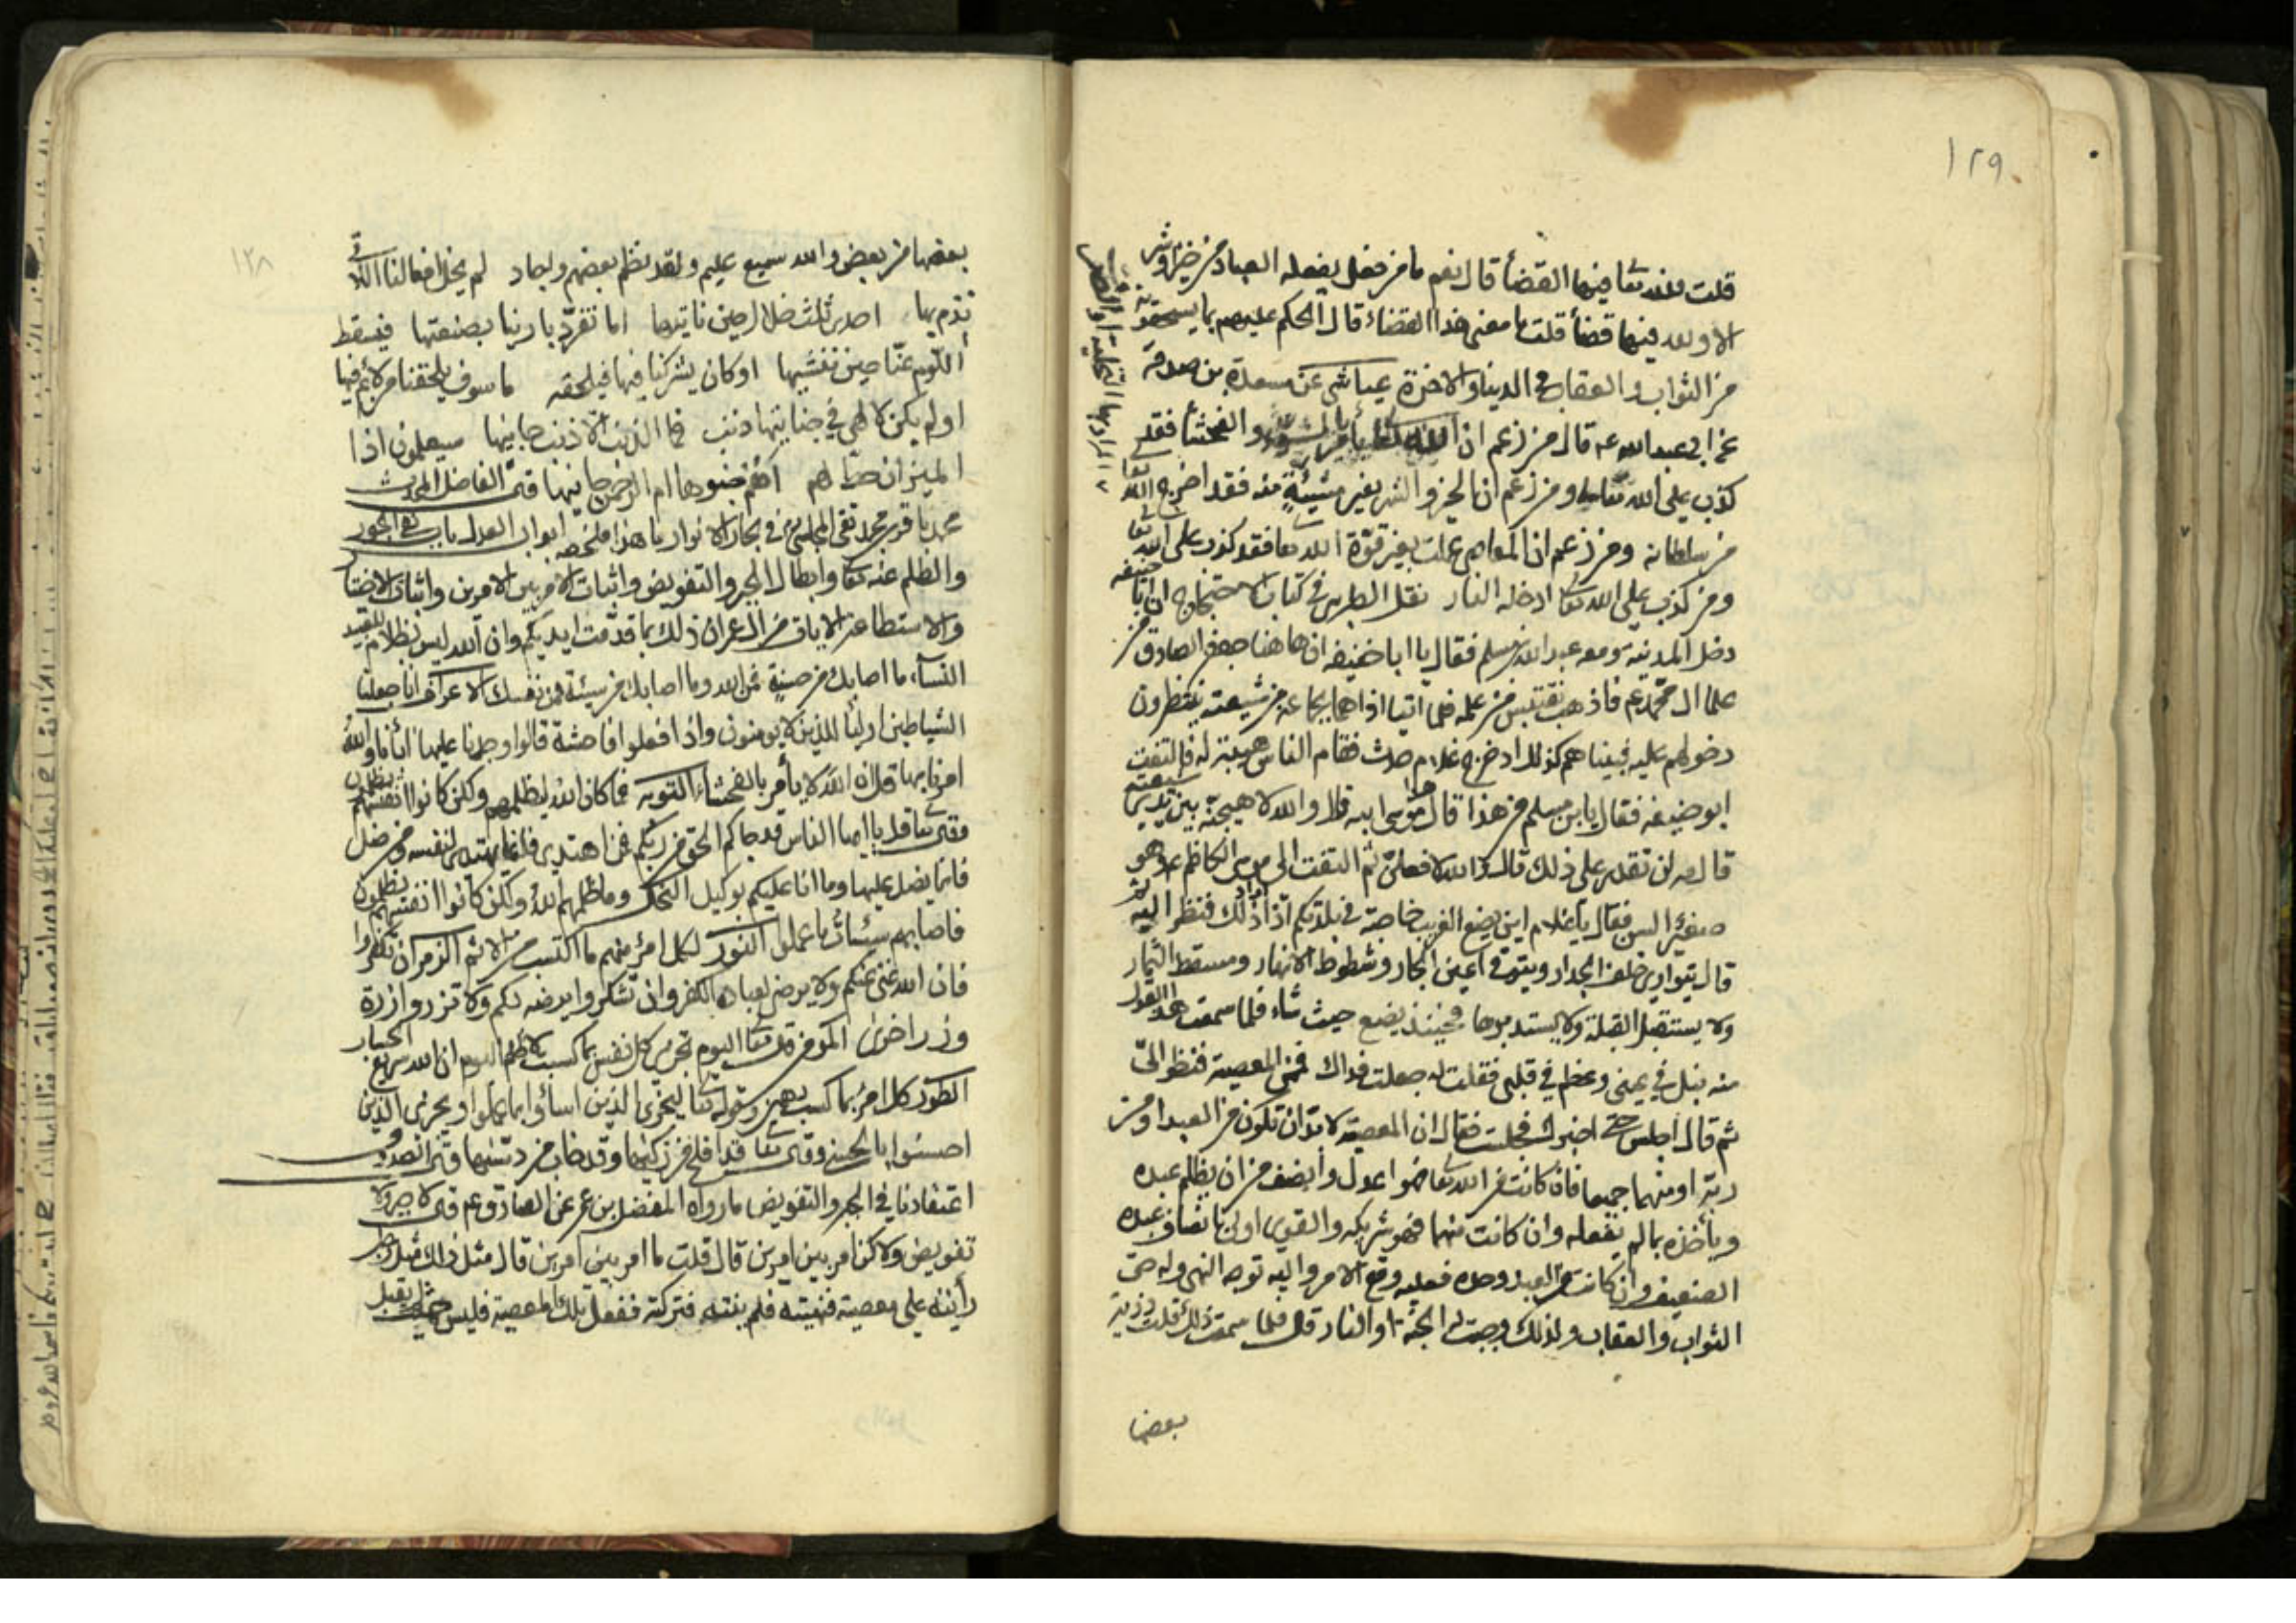 ١٢٩
قلت فلله تعا فيها القضأ قال نعم ما من فعل يفعله العباد من خير وشر
الا ولله فيها قضأ قلت ما معنى هذا القضاء قال الحكم عليهم بما يستحقونه
من الثواب والعقاب فى الدينا والاخرة عياشى عن مسعدة بن صدقة
عن ابى عبدالله عه قال من زعم ان الله تعا يأمر بالسوء والفحشأ فقد
كذب على الله تعا ومن زعم ان الخير والشر بغير مشيئة منه فقد اخرج الله تعا
من سلطانه ومن زعم ان المعاصى عملت بغير قوّة الله تعا فقد كذب على الله تعا
ومن كذب على الله تعا ادخله النار نقل الطبرسى فى كتاب الاحتجاج ان ابا حنيفه
دخل المدينة ومعه عبدالله بن مسلم فقال يا ابا حنيفه ان هاهنا جعفر الصادق من
علما ال محمّد عم فاذهب نقتبس من علمه فلما اتيا اذا هما بجماعه من شيعته ينتظرون
دخولهم عليه فبينا هم كذلك اد خرج غلام حدث فقام الناس هيبة له فالتفت
ابو حنيفه فقال يابن مسلم من هذا قال موسى ابنه قال والله لاجبهنه بين يدي شيعته
قال مه لن تقدر على ذلك قال والله لافعلن ثم التفت الى موسى الكاظم عه وهو
صغير السن فقال ياغلام اين يضع الغريب حاجته فى بلدتكم اذا اراد ذلك فنظر اليه
قال يتوارى خلف الجدار ويتوقى اعين الجار وشطوط الانهار ومسقط الثمار
ولا يستقبل القبلة ولا يستدبرها فحينئذ يضع حيث شاء فلما سمعت هذا القول
منه نبل فى عينى وعظم فى قلبى فقلت له جعلت فداك فمن المعصية فنظر الىّ
ثم قال اجلس حتى اخبرك فجلست فقال ان المعصية لا بدّ ان تكون من العبد او من
ربّه او منهما جميعا فان كانت من الله تعا فهو اعدل وانصف من ان يظلم عبده
ويأخذه بما لم يفعله وان كانت منهما فهو شريكه والقوى اولى بانصاف عبده
الضعيف وان كانت من العبد وحده فعليه وقع الامر واليه توجه النهى وله حق
الثواب والعقاب ولذلك وجبت له الجنّة او النار قال فلما سمعت ذلك قلت ذرية
بعضها
١٢٨
بعضها من بعض والله سميع عليم ولقد نظم بعضهم واجاد لم يخل افعالنا اللاتى
نذم بها احدى ثلث خلال حين ناتيها اما تفرّد بارينا بصنعتها فيسقط
اللّوم عنّا حين نغشيها او كان يشركنا فيها فيلحقه ما سوف يلحقنا من لائم فيها
او لم يكن لالهى فى جنايتها ذنب فما الذنب الا ذنب جانيها سيعلمون اذا
الميزان حال بهم أهم جنوها ام الرحمن جانيها قال الفاضل المحدث
محمد باقر بن محمد تقى المجلسى فى بحار الانوار ما هذا ملخصه ابواب العدل باب نفى الجور
والظلم عنه تعا وابطال الجبر والتفويض واثبات الامر بين الامرين واثبات الاختيار
والاستطاعة الايات من ال عمران ذلك بما قدّمت ايديكم وان الله ليس بظلام للعبيد
النسآء ما اصابك من حسنة فمن الله وما اصابك من سيئة فمن نفسك الاعراف انا جعلنا
الشياطين اوليأ للذين لا يؤمنون واذا فعلوا فاحشة قالوا وجدنا عليها ابأنا والله
امرنا بها قل ان الله لا يأمر بالفحشاء التوبه فما كان الله ليظلمهم ولكن كانوا انفسهم يظلمون
وقال تعا قل يا ايها الناس قد جاكم الحق من ربكم فمن اهتدى فانما يهتدى لنفسه ومن ضل
فانما يضل عليها وما انا عليكم بوكيل النحل وما ظلمهم الله ولكن كانوا انفسهم يظلمون
فاصابهم سيئات ما عملوا النور لكل امرئ منهم ما اكتسب من الاثم الزمر ان تكفروا
فان الله غنى عنكم ولا يرضى لعباده الكفر وان تشكروا يرضه لكم ولا تزر وازرة
وزر اخرى المؤمن قال تعا اليوم تجزى كل نفس بما كسبت لا ظلم اليوم ان الله سريع الحساب
الطور كل امرئ بما كسب رهين وقوله تعا ليجزى الذين اسأوا بما عملوا ويجزى الذين
احسنوا بالحسنى وقال تعا قد افلح من زكيها وقد خاب من دسّيها وقال الصدوق
اعتقادنا فى الجبر والتفويض ما رواه المفضل بن عمر عن الصادق عم قال لا جبر ولا
تفويض ولاكن امر بين امرين قال قلت ما امر بين امرين قال مثل ذلك مثل رجل
رأيته على معصية فنهيته فلم ينته فتركته ففعل تلك المعصية فليس حيث لم يقبل